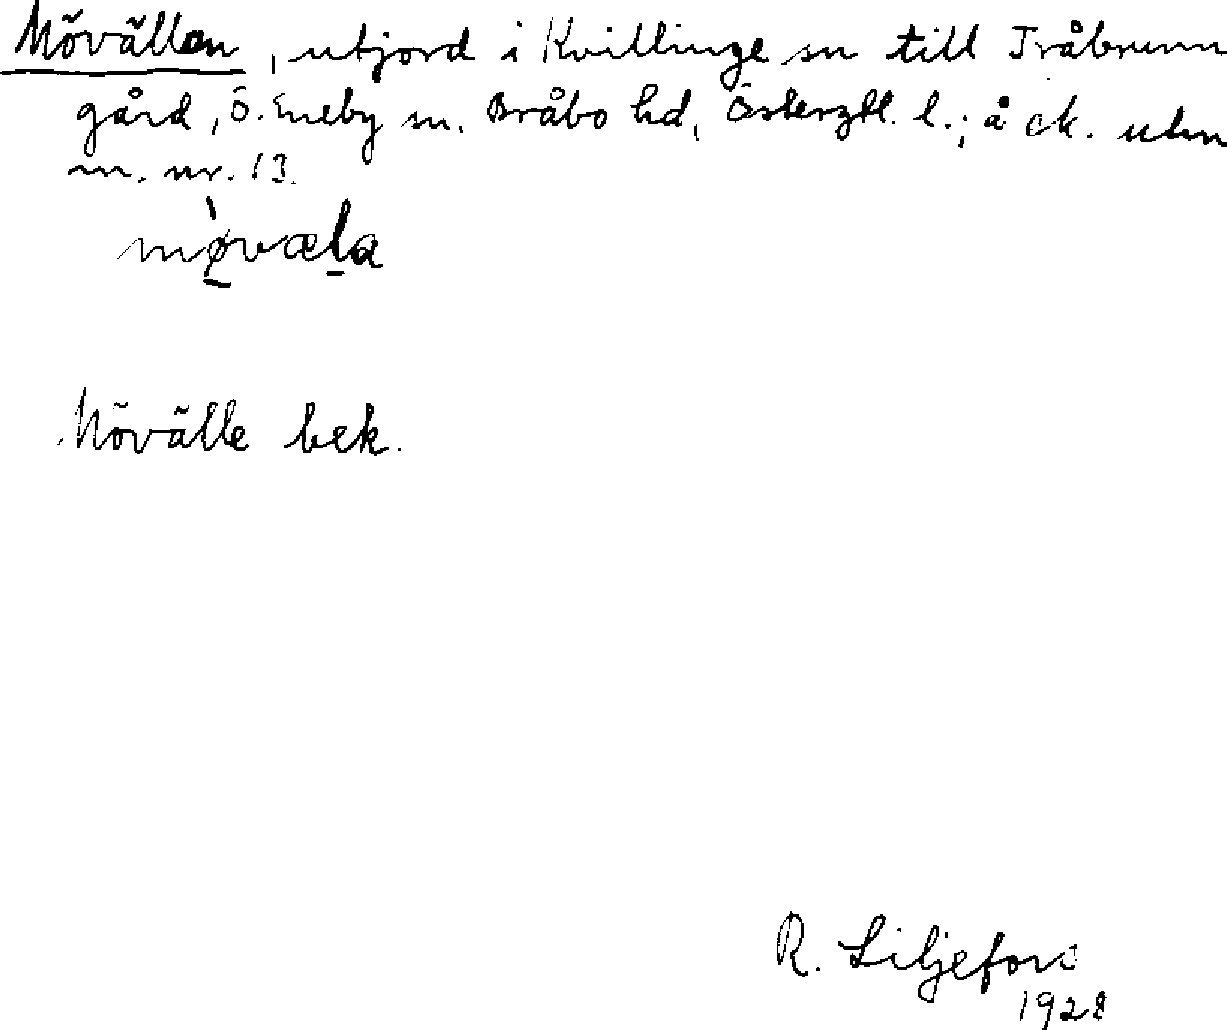 Mövällen, utjord i Kvillinge sn till Tråbrunn
gård, Ö. Eneby sn. Bråbo hd, Östergtl. l.; å ek. utan
m. nr. 13.
mòvæla
Mövälle bek.
R. Liljefors
1928